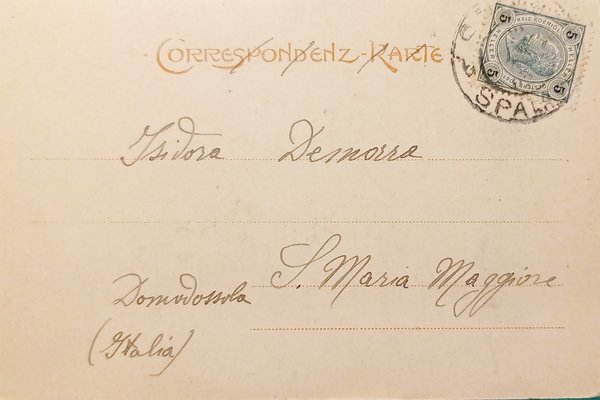 CORRESPONDENZ-KARTE
5 5 5 5
KAIS. KOENIGL.
HELLER HELLER
SPALA
Isidora Demorra
S. Maria Maggiore
Domodossola
(Italia)